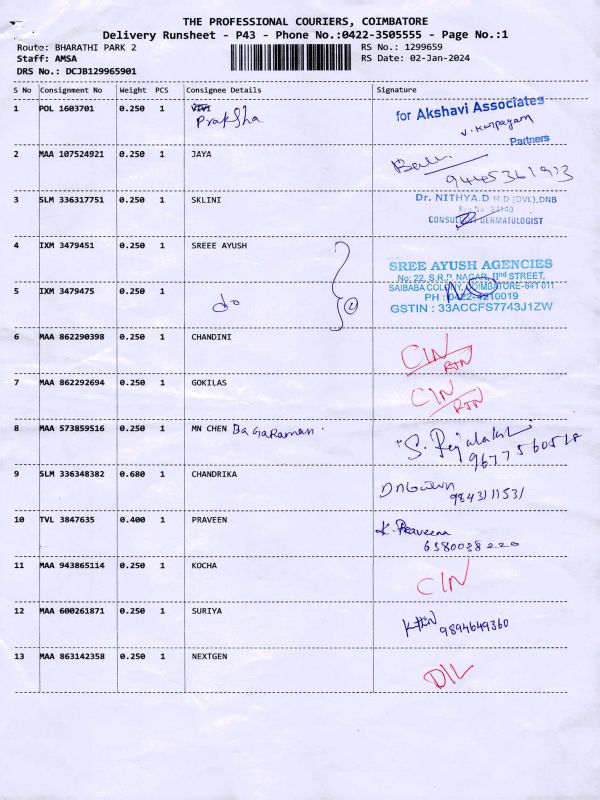 THE PROFESSIONAL COURIERS, COIMBATORE
Delivery Runsheet - P43 - Phone No.:0422-3505555 - Page No.:1
Route: BHARATHI PARK 2 RS No.: 1299659
Staff: AMSA RS Date: 02-Jan-2024
DRS No.: DCJB129965901
S No Consignment No Weight PCS Consignee Details Signature
1 POL 1603701 0.250 1 VIVI
Praksha
for Akshavi Associates
Partners
2 MAA 107524921 0.250 1 JAYA
3 SLM 336317751 0.250 1 SKLINI Dr. NITHYA.D M.D (DVL),DNB
Reg No. 84140
CONSULTANT DERMATOLOGIST
4 IXM 3479451 0.250 1 SREEE AYUSH
SREE AYUSH AGENCIES
No: 22, S.R.P. NAGAR, IInd STREET,
SAIBABA COLONY, COIMBATORE-641 011
5 IXM 3479475 0.250 1 do (2)
PH : 0422-4210019
GSTIN : 33ACCFS7743J1ZW
6 MAA 862290398 0.250 1 CHANDINI CIN
RTN
7 MAA 862292694 0.250 1 GOKILAS CIN
RTN
8 MAA 573859516 0.250 1 MN CHEN
9677560518
9 SLM 336348382 0.680 1 CHANDRIKA
9843111531
10 TVL 3847635 0.400 1 PRAVEEN K. Praveena
6380028220
11 MAA 943865114 0.250 1 KOCHA CIN
12 MAA 600261871 0.250 1 SURIYA 9894649360
13 MAA 863142358 0.250 1 NEXTGEN D/L